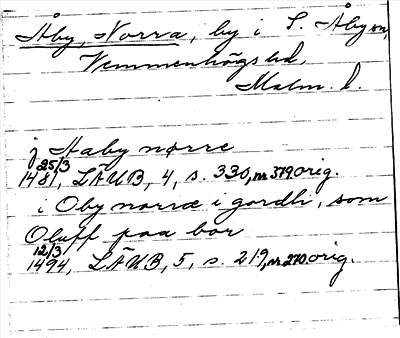 Åby, Norra, by i S. Åby sn,
Vemmenhögs hd,
Malm. l.
j Aaby nørre
25/3
1481, LÄUB, 4, s. 330, nr 379 orig.
i Oby norræ i gordh, som
Oluff paa bor
12/3
1494, LÄUB, 5, s. 219, nr 270 orig.